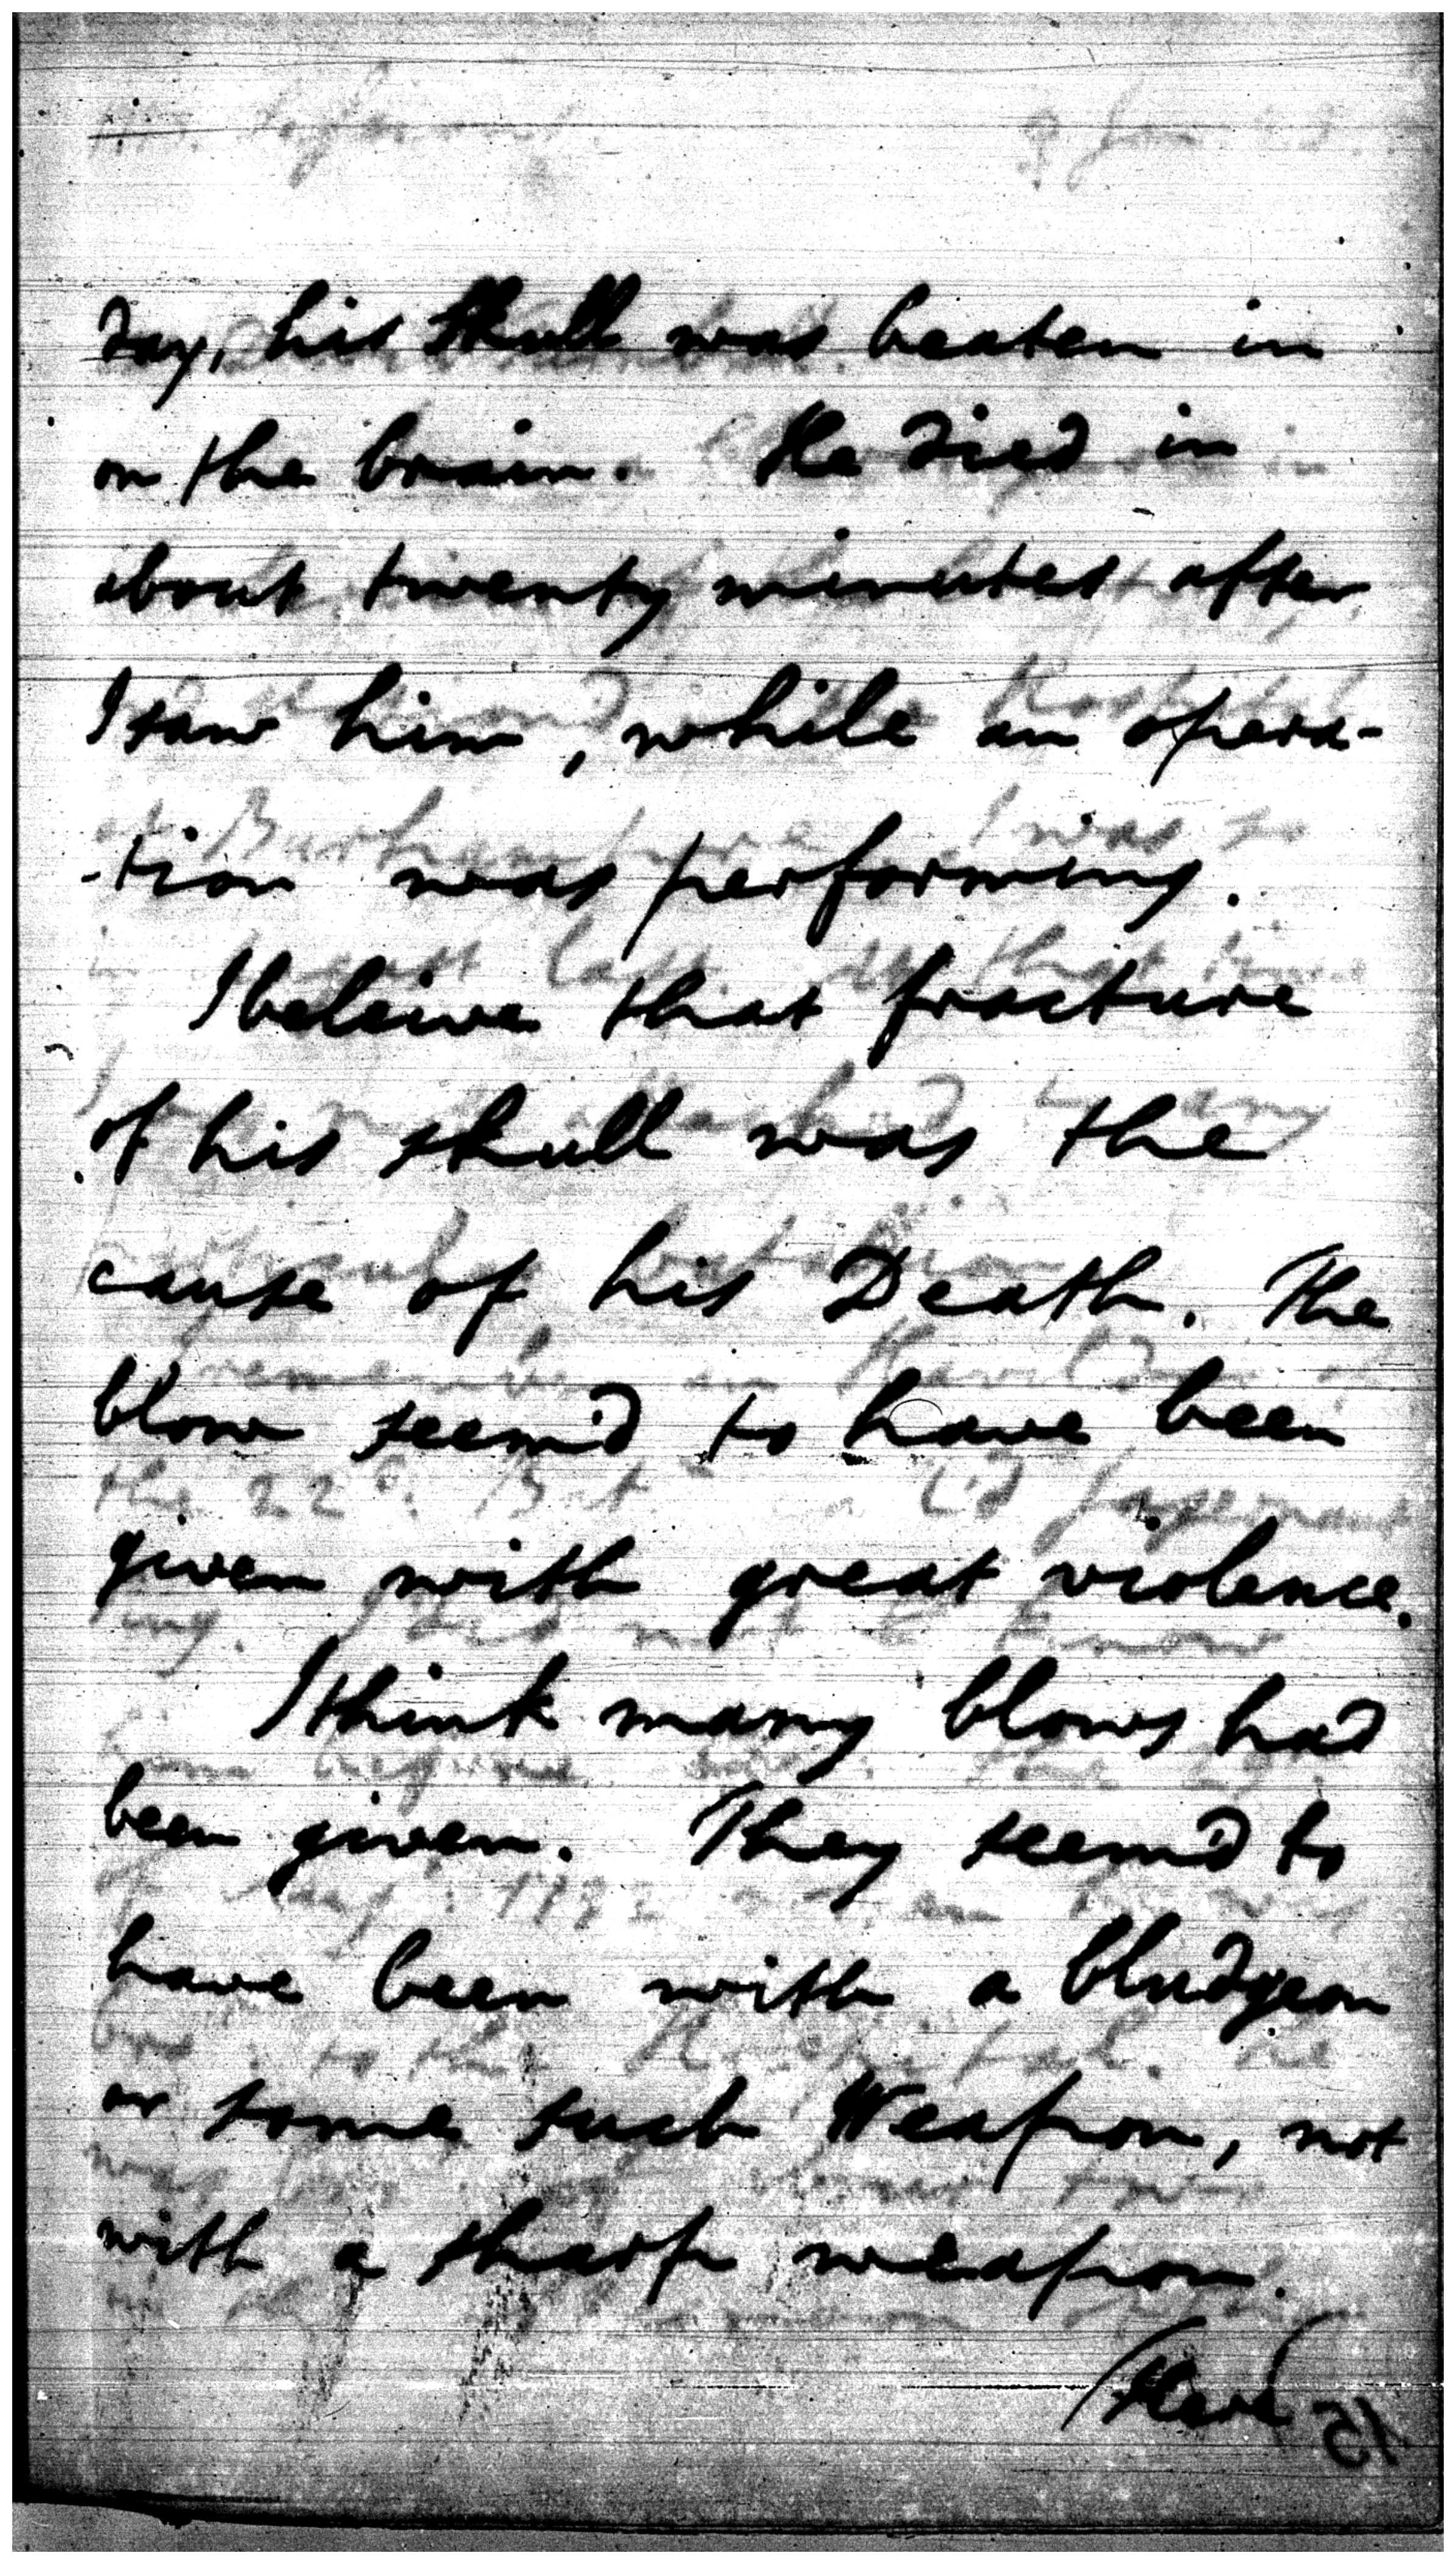 day, his skull was beaten in
on the brain. He died in
about twenty minutes after
I saw him, while an opera-
-tion was performing.
I beleive that fracture
of his skull was the
cause of his Death. The
blow seem'd to have been
given with great violence.
I think many blows had
been given. They seem'd to
have been with a bludgeon
or some such Weapon, not
with a sharp weapon.
(Here